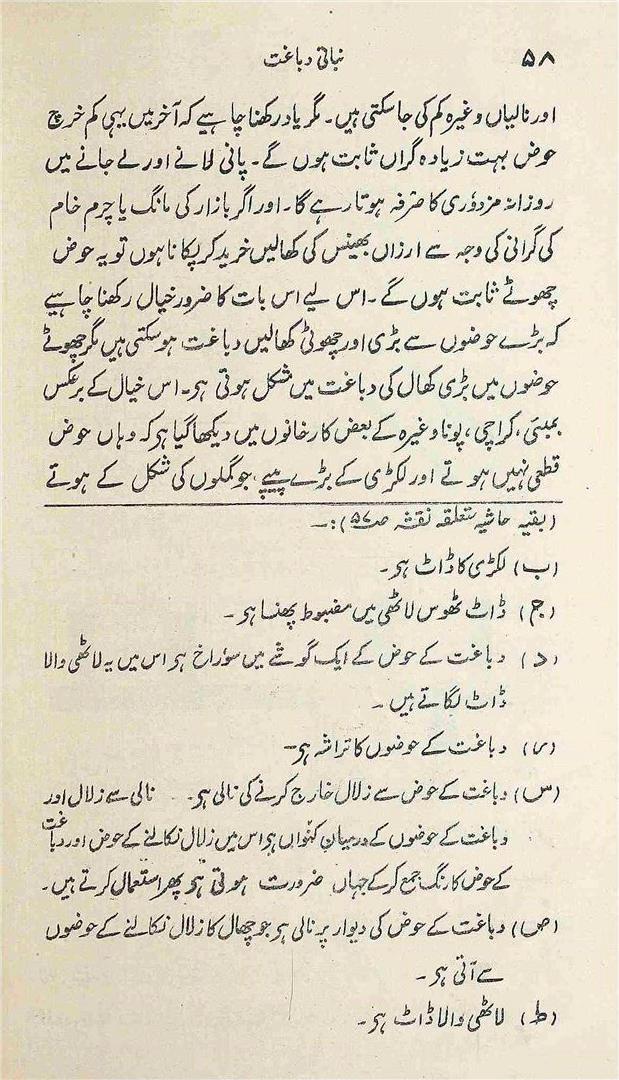 ۵۸ نباتی دباغت
اور نالیاں وغیرہ کم کی جا سکتی ہیں۔ مگر یاد رکھنا چاہیے کہ آخر میں یہی کم خرچ
حوض بہت زیادہ گراں ثابت ہوں گے۔ پانی لانے اور لے جانے میں
روزانہ مزدوٗری کا صَرفہ ہوتا رہے گا۔ اور اگر بازار کی مانگ یا چرم خام
کی گرانی کی وجہ سے ارزاں بھینس کی کھالیں خرید کر پکانا ہوں تو یہ حوض
چھوٹے ثابت ہوں گے۔ اس لیے اس بات کا ضرور خیال رکھنا چاہیے
کہ بڑے حوضوں سے بڑی اور چھوٹی کھالیں دباغت ہو سکتی ہیں مگر چھوٹے
حوضوں میں بڑی کھال کی دباغت میں مشکل ہوتی ہر۔ اس خیال کے برعکس
بمبئی، کراچی، پونا وغیرہ کے بعض کارخانوں میں دیکھا گیا ہر کہ وہاں حوض
قطعی نہیں ہوتے اور لکڑی کے بڑے پیپے، جو گملوں کی شکل کے ہوتے
(بقیہ حاشیہ متعلقہ نقشہ صـ ۵۷):۔
(ب) لکڑی کا ڈاٹ ہر۔
(ج) ڈاٹ ٹھوس لاٹھی میں مضبوط پھنسا ہر۔
(د) دباغت کے حوض کے ایک گوشے میں سوٗراخ ہر اس میں یہ لاٹھی والا
ڈاٹ لگاتے ہیں۔
(ر) دباغت کے حوضوں کا تراشہ ہر۔
(س) دباغت کے حوض سے زلال خارج کرنے کی نالی ہر۔ نالی سے زلال اور
دباغت کے حوضوں کے درمیان کنواں ہر اس میں زلال نکالنے کے حوض اور دباغت
کے حوض کا رنگ جمع کر کے جہاں ضرورت ہوتی ہر پھر استعمال کرتے ہیں۔
(ص) دباغت کے حوض کی دیوار پر نالی ہر جو چھال کا زلال نکالنے کے حوضوں
سے آتی ہر۔
(ط) لاٹھی والا ڈاٹ ہر۔